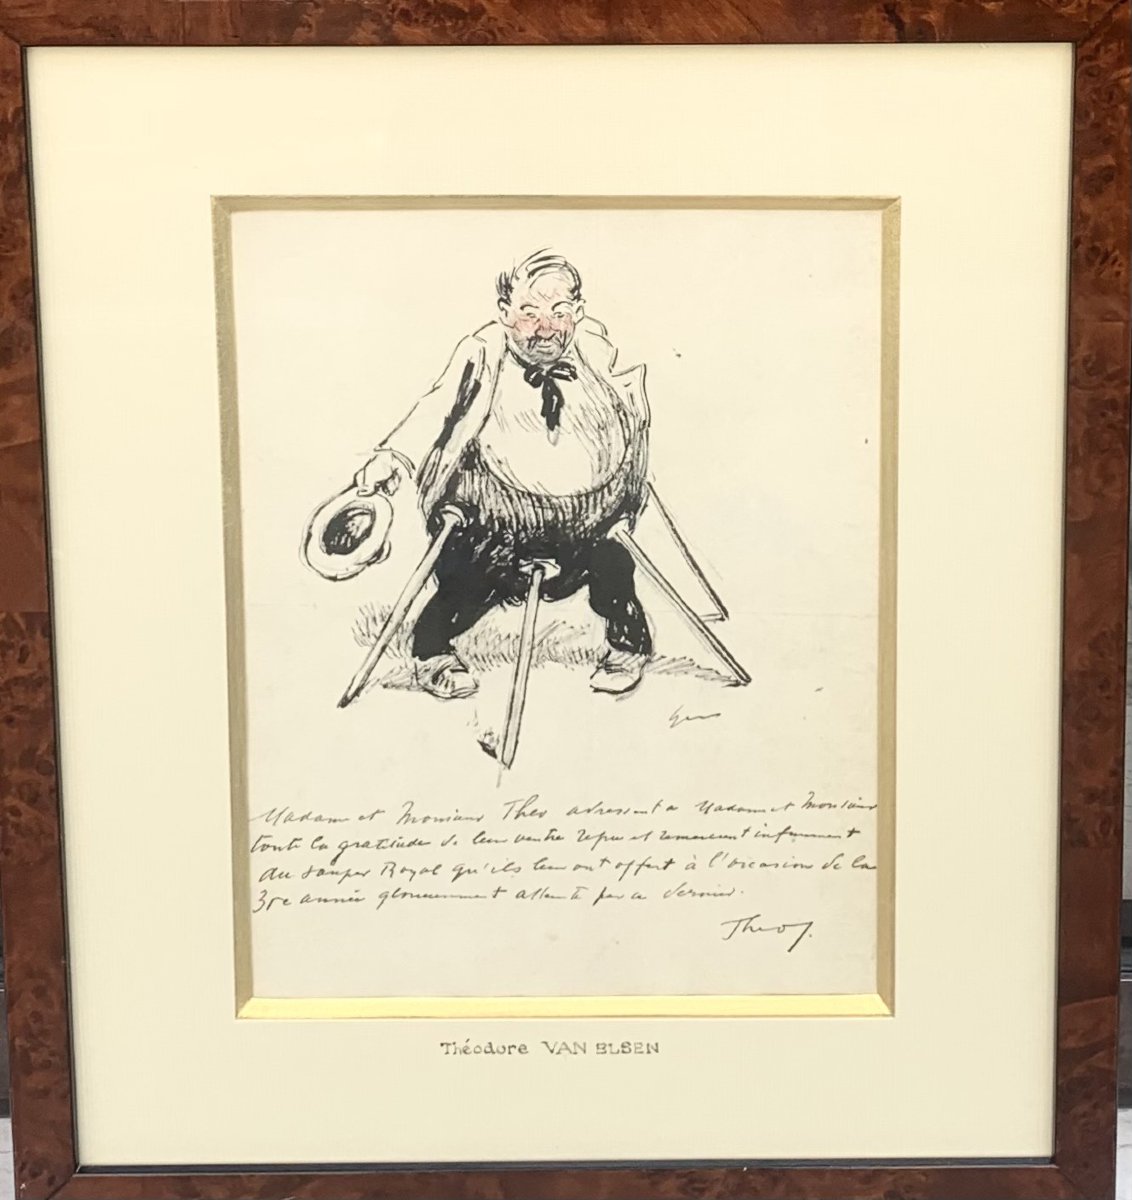 Madame et Monsieur Theo adressent a Madame et Monsieur
toute la gratitude de leur ventre repu et remercient infiniment
au souper Royal qu'ils leur ont offert à l'occasion de la
35e année glorieusement atteinte par ce dernier.
Theo
Théodore VAN ELSEN